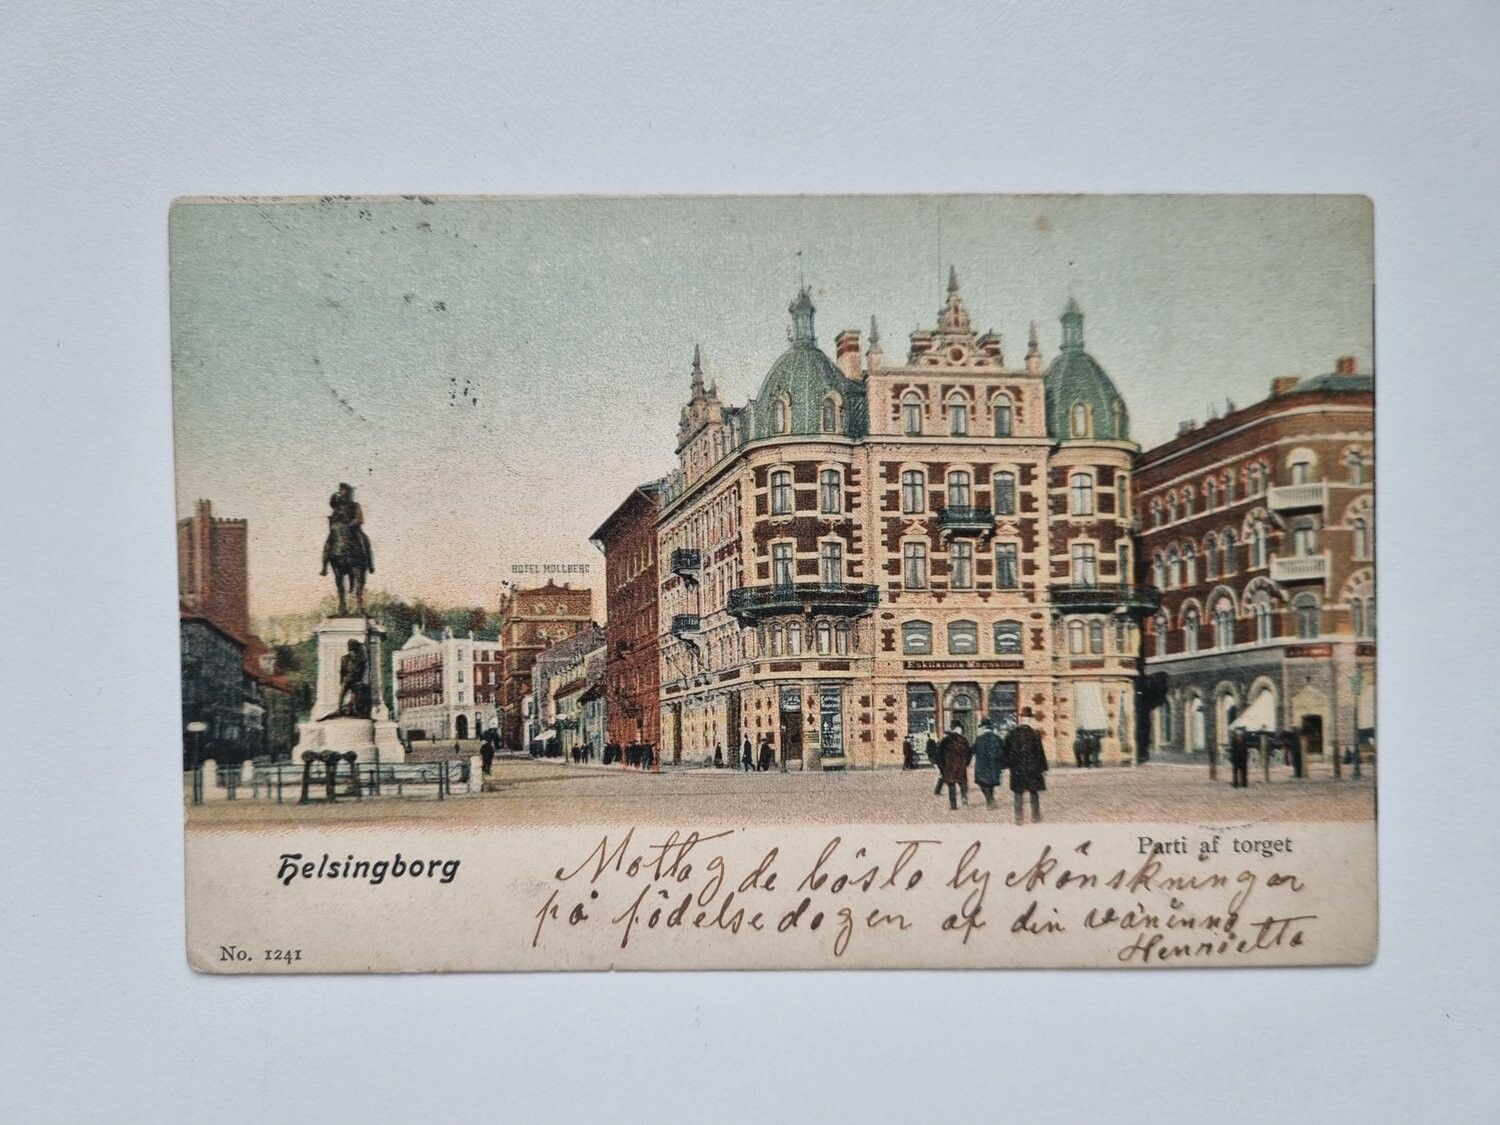 HOTEL MOLLBERG
Eskilstuna Magasinet
Helsingborg
Parti af torget
Mottag de bästa lyckönskningar
på födelsedagen af din väninna
Henrietta
No. 1241